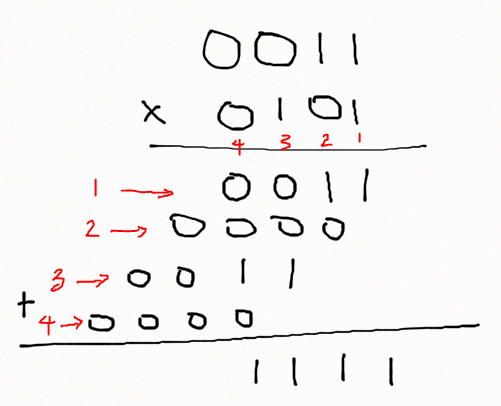 0011
x 0101
4 3 2 1
1 → 0011
2 → 0000
3 → 0011
+ 4 → 0000
1111